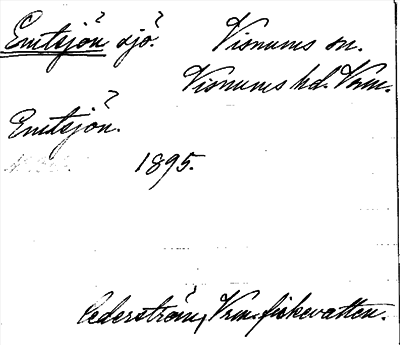 Emtsjön sjö? Visnums sn.
Visnums hd. Vrm.
Emtsjön.
1895.
Cederström, Vrm. fiskevatten.